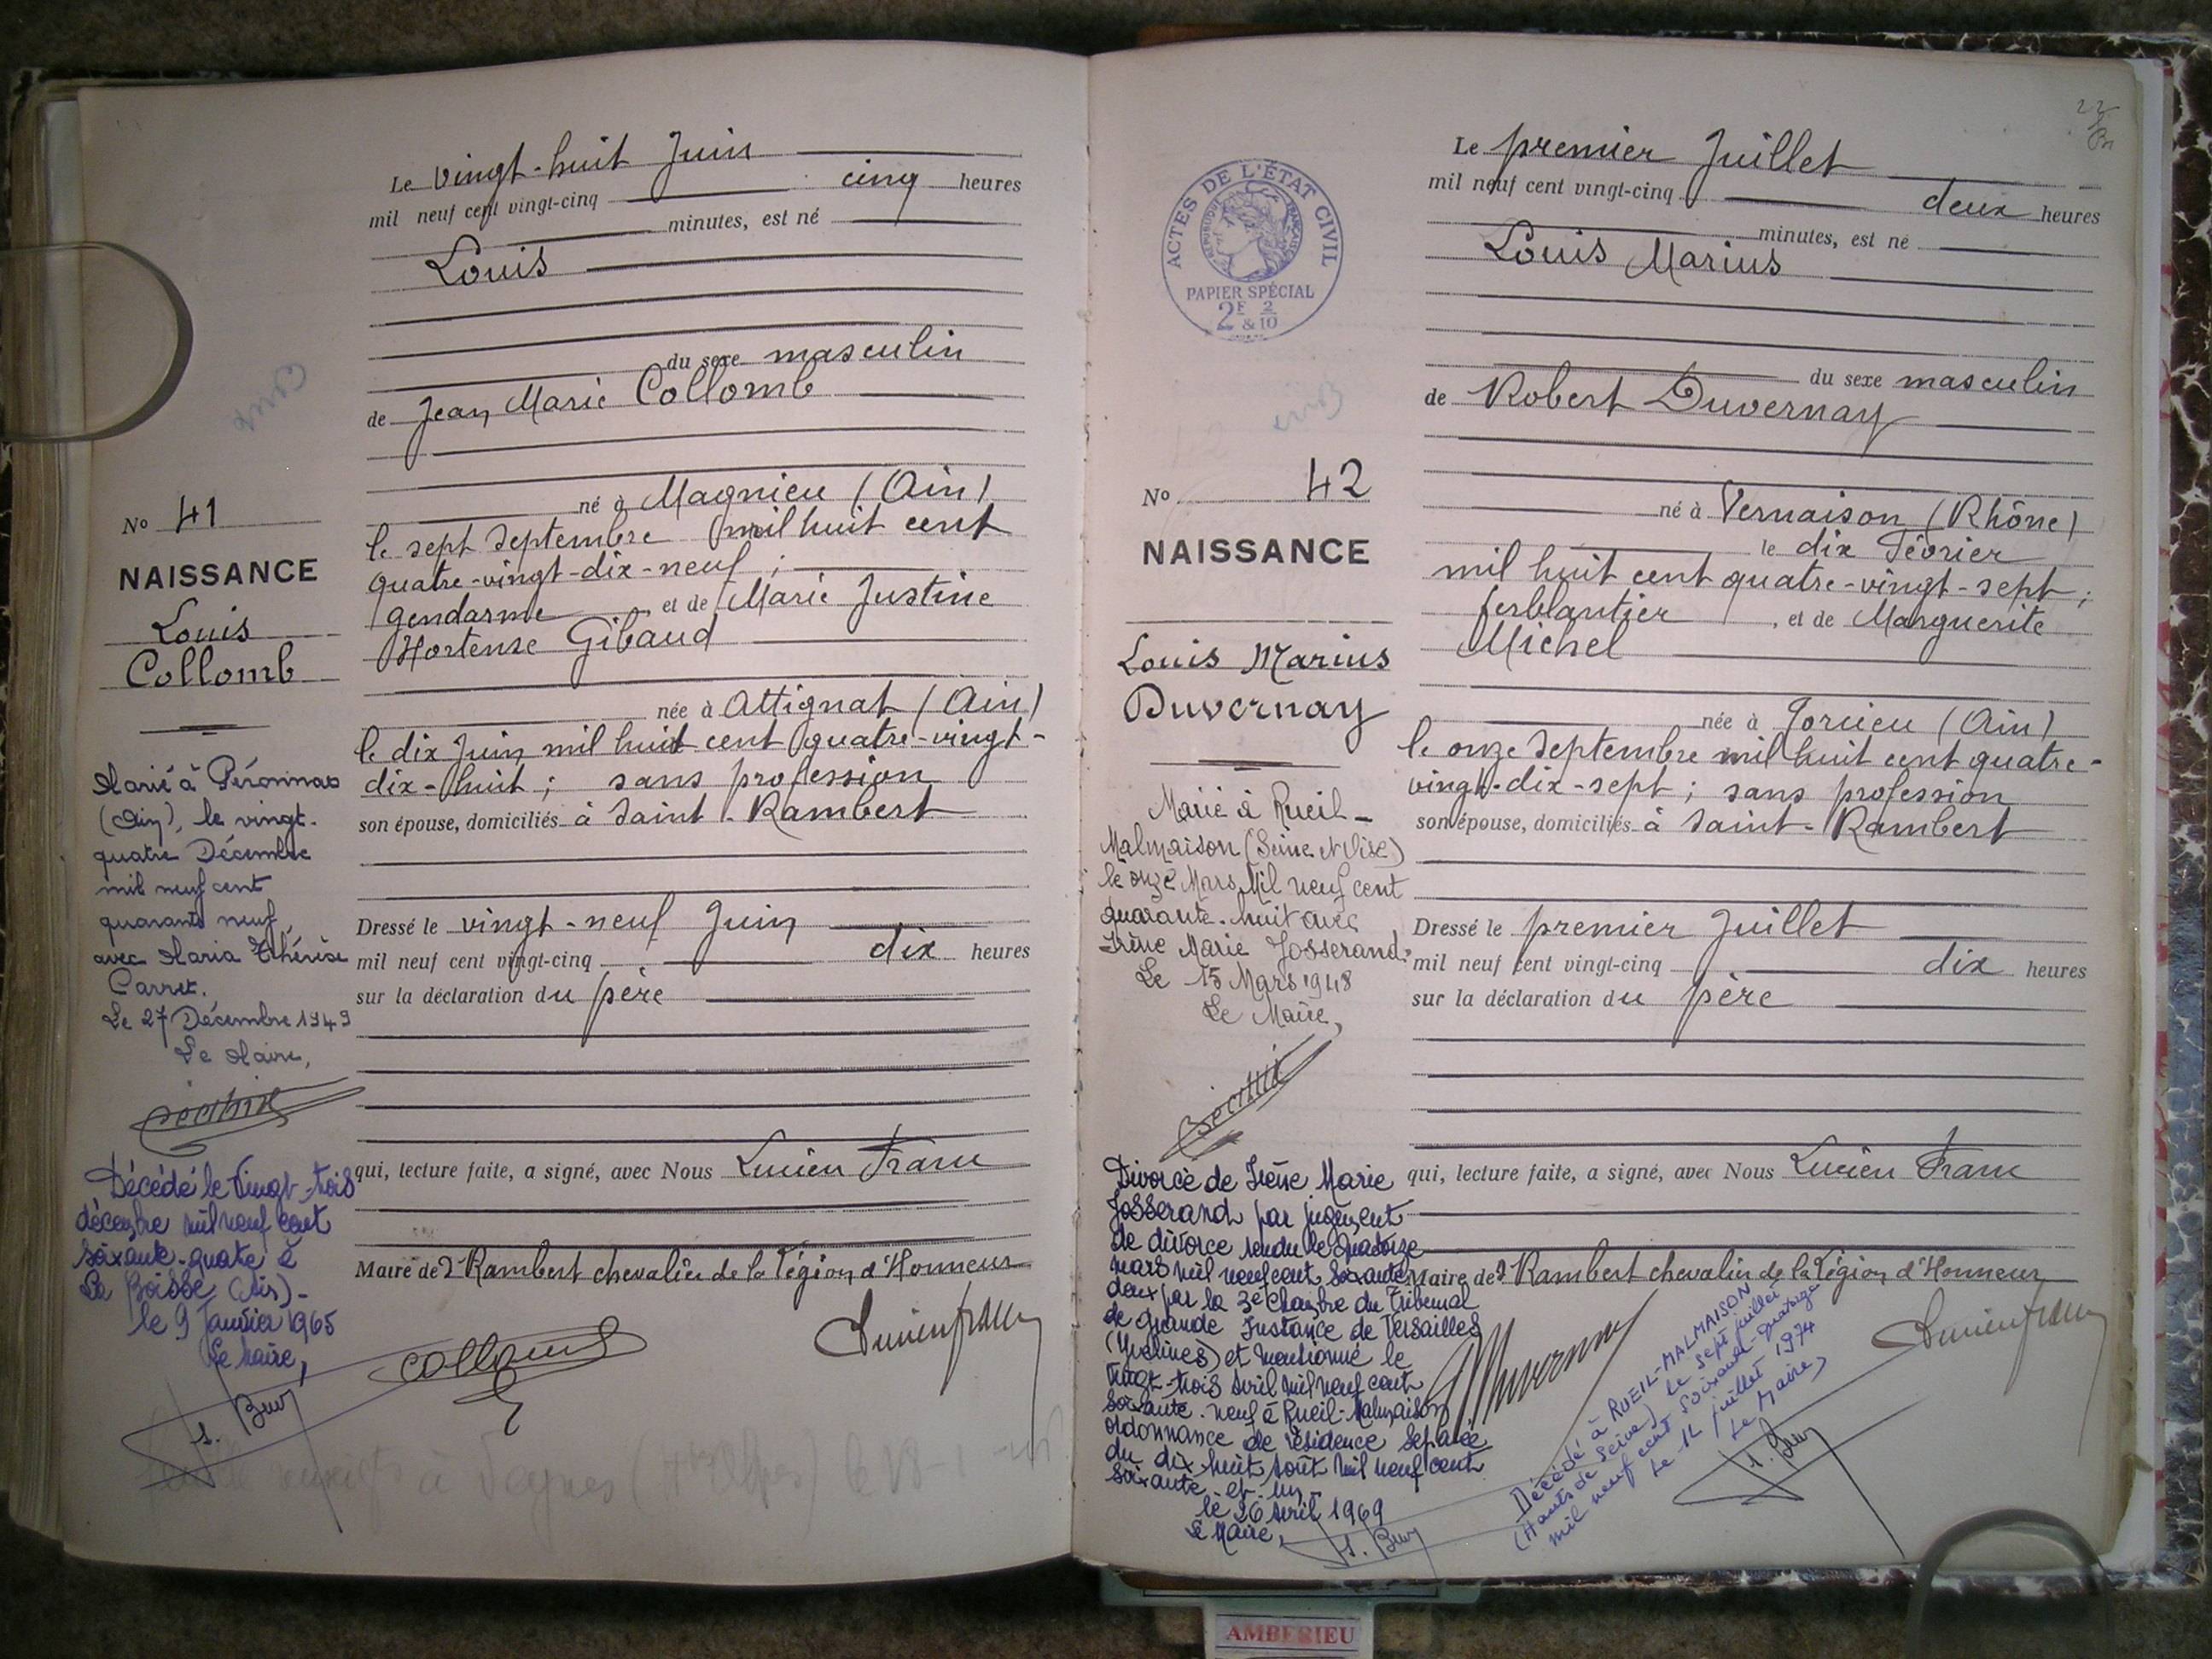 Le vingt-huit Juin
mil neuf cent vingt-cinq cinq heures
minutes, est né
Louis
du sexe masculin
de Jean Marie Collomb
né à Magnieu (Ain)
le sept Septembre mil huit cent
quatre-vingt-dix-neuf ;
gendarme, et de Marie Justine
Hortense Gibaud
née à Attignat (Ain)
le dix Juin mil huit cent quatre-vingt-
dix-huit ; sans profession
son épouse, domiciliés à Saint-Rambert
Dressé le vingt-neuf Juin
mil neuf cent vingt-cinq dix heures
sur la déclaration du père
qui, lecture faite, a signé, avec Nous Lucien Franc
Maire de St Rambert chevalier de la Légion d'Honneur
Collomb
Lucien franc
No 41
NAISSANCE
Louis
Collomb
Marié à Péronnas
(Ain), le vingt-
quatre Décembre
mil neuf cent
quarante neuf
avec Maria Thérèse
Carret.
Le 27 Décembre 1949
Le Maire,
Décédé le vingt-trois
décembre mil neuf cent
soixante-quatre à
La Boisse (Ain)-
le 9 Janvier 1965
Le Maire,
22
ACTES DE L'ÉTAT CIVIL
RÉPUBLIQUE FRANÇAISE
PAPIER SPÉCIAL
2F & 2/10
Le premier Juillet
mil neuf cent vingt-cinq deux heures
minutes, est né
Louis Marius
du sexe masculin
de Robert Duvernay
né à Vernaison (Rhône)
le dix Février
mil huit cent quatre-vingt-sept ;
ferblantier, et de Marguerite
Michel
née à Torcieu (Ain)
le onze Septembre mil huit cent quatre-
vingt-dix-sept ; sans profession
son épouse, domiciliés à Saint-Rambert
Dressé le premier Juillet
mil neuf cent vingt-cinq dix heures
sur la déclaration du père
qui, lecture faite, a signé, avec Nous Lucien Franc
Maire de St Rambert chevalier de la Légion d'Honneur
Duvernay
Lucien franc
No 42
NAISSANCE
Louis Marius
Duvernay
Marié à Rueil-
Malmaison (Seine et Oise)
le onze Mars Mil neuf cent
quarante-huit avec
Irène Marie Josserand.
Le 15 Mars 1948
Le Maire,
Divorcé de Irène Marie
Josserand par jugement
de divorce rendu le quatorze
mars mil neuf cent soixante
deux par la 3e Chambre du Tribunal
de Grande Instance de Versailles
(Yvelines) et mentionné le
vingt-trois Avril mil neuf cent
soixante-neuf à Rueil-Malmaison
ordonnance de résidence séparée
du dix huit Août mil neuf cent
soixante-et-un-
le 26 Avril 1969
Le Maire,
Décédé à RUEIL-MALMAISON
(Hauts de Seine) le sept juillet
mil neuf cent soixante-quatorze
Le 12 juillet 1974
Le Maire,
AMBERIEU